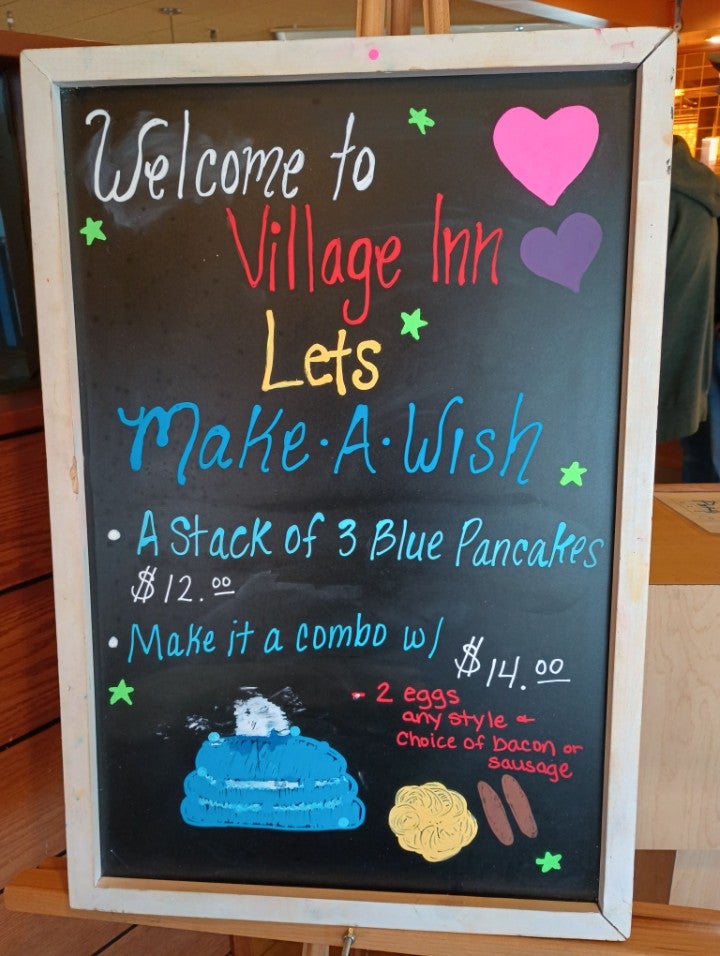 Welcome to
Village Inn
Lets
Make·A·Wish
• A Stack of 3 Blue Pancakes
$12.00
• Make it a combo w/ $14.00
- 2 eggs
any style &
choice of bacon or
sausage